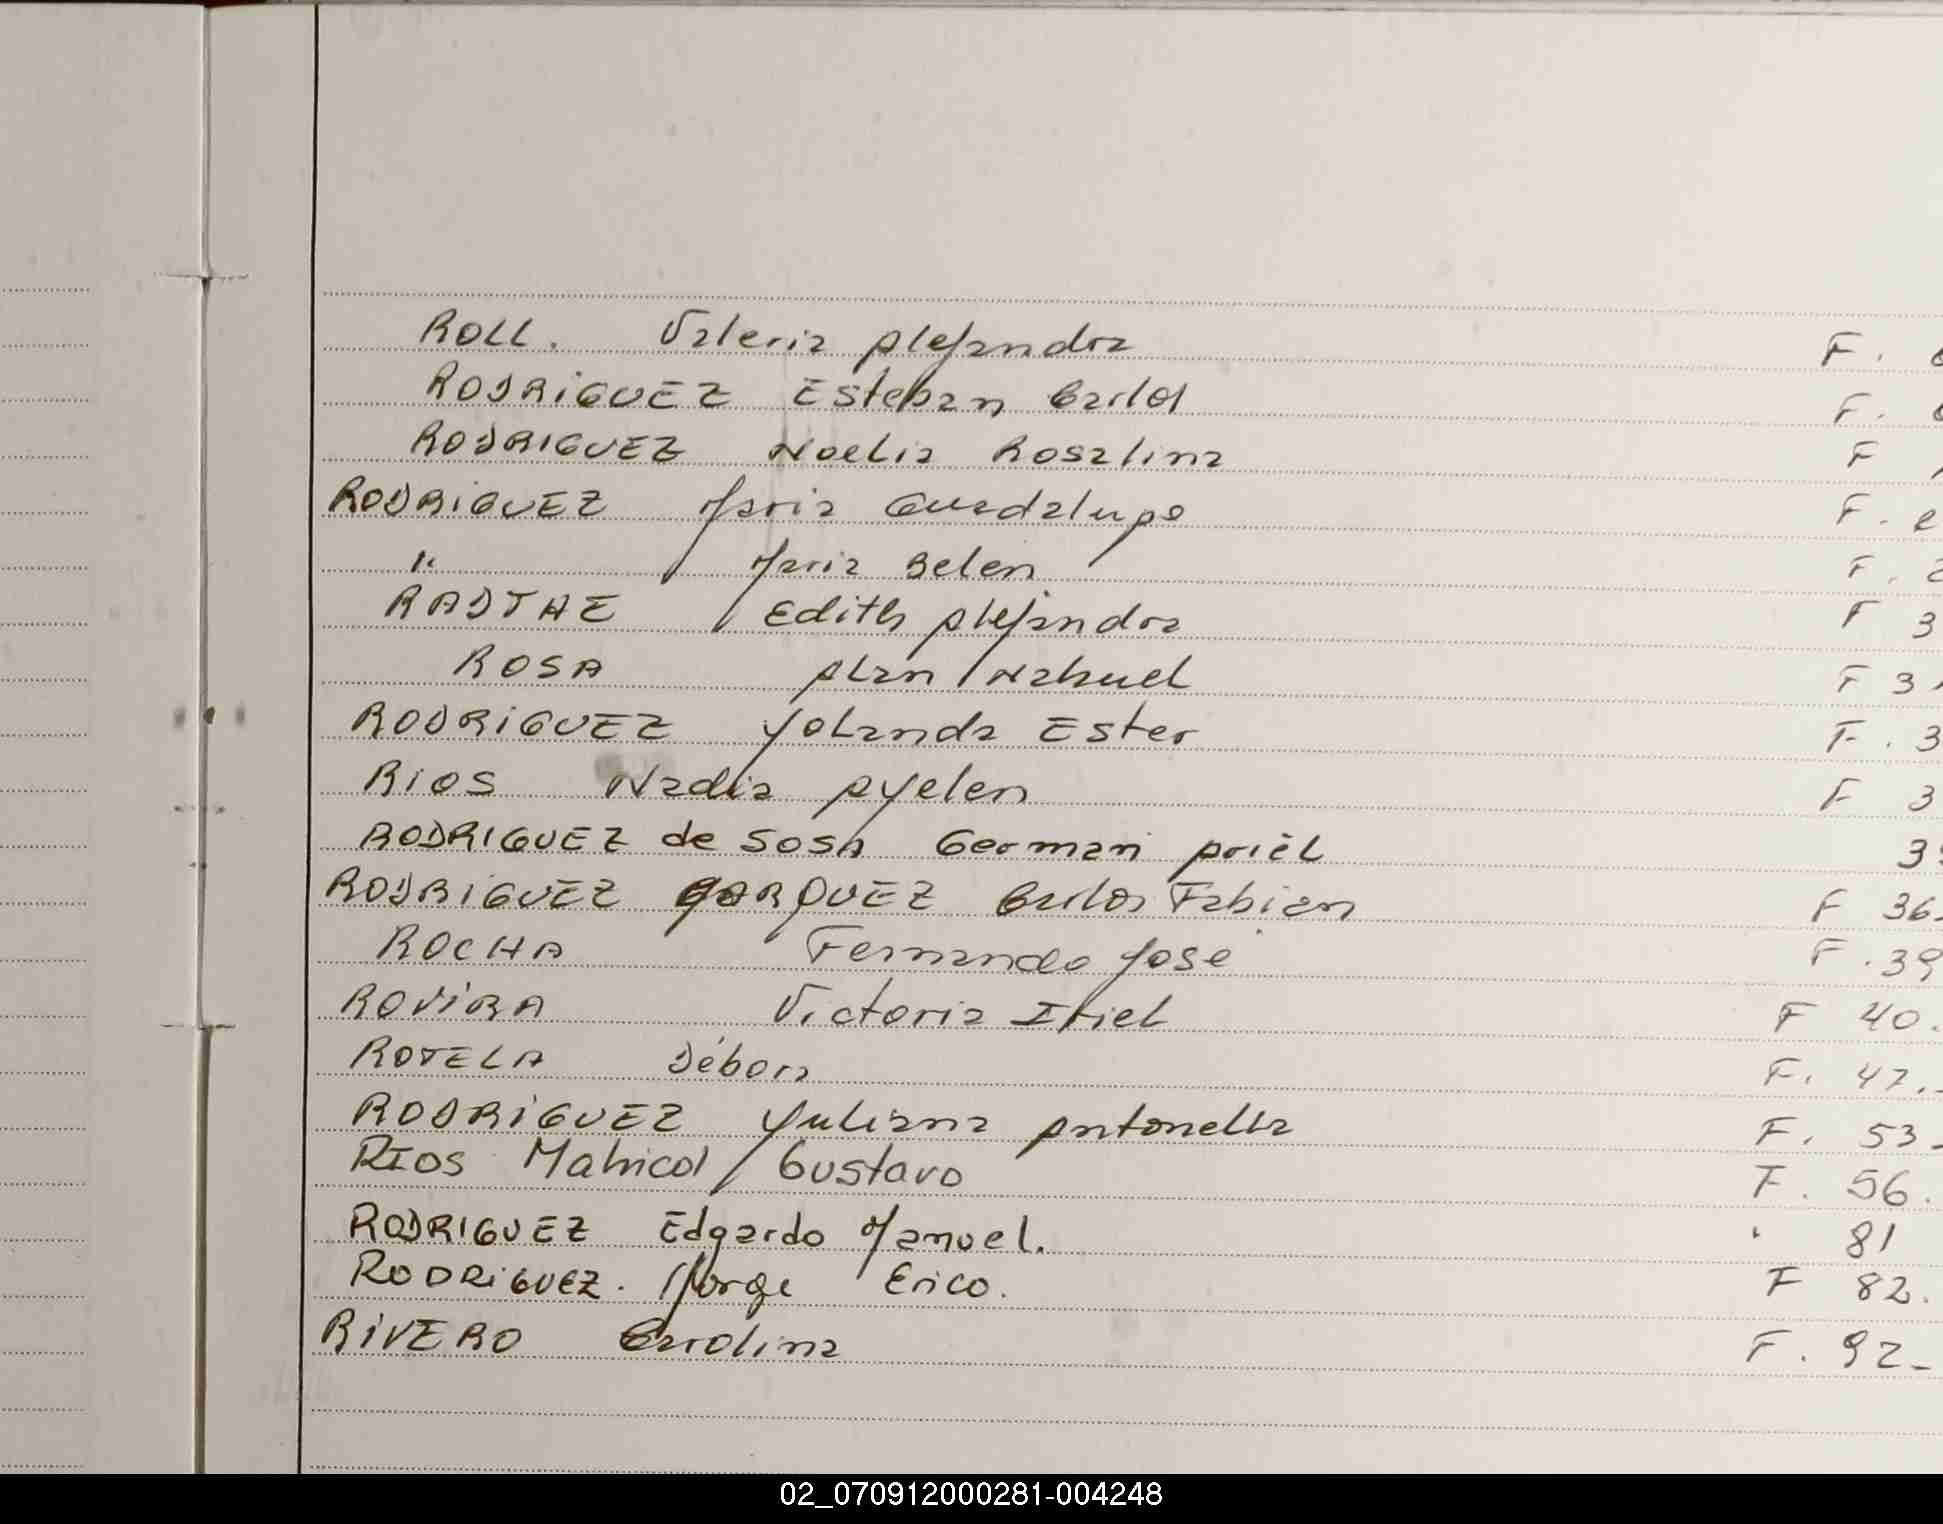 ROLL. Valeria Alejandra F.
RODRIGUEZ Esteban Carlos F.
RODRIGUEZ Noelia Rosalina F
RODRIGUEZ Maria Guadalupe F. 2
" Maria Belen F. 2
RADTHE Edith Alejandra F 3
ROSA Alan Nahuel F 3
RODRIGUEZ Yolanda Ester F. 3
RIOS Nadia Ayelen F 3
RODRIGUEZ de SOSA German Ariel 3
RODRIGUEZ MARQUEZ Carlos Fabian F 36.
ROCHA Fernando José F. 39
ROVIRA Victoria Itiel F 40.
ROTELA Débora F. 47.
RODRIGUEZ Yuliana Antonella F. 53-
RIOS Gustavo F. 56.
RODRIGUEZ Edgardo Manuel. " 81
RODRIGUEZ. Jorge Erico. F 82.
RIVERO Carolina F. 92-
02_070912000281-004248